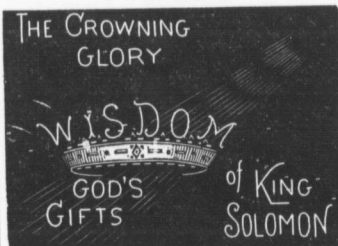 THE CROWNING
GLORY
WISDOM
GOD'S
GIFTS
of KING
SOLOMON